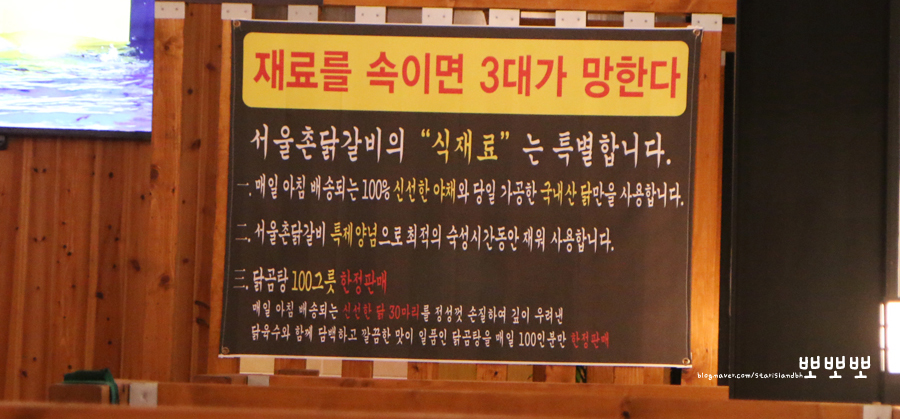 재료를 속이면 3대가 망한다
서울촌닭갈비의 “식재료” 는 특별합니다.
一. 매일 아침 배송되는 100% 신선한 야채와 당일 가공한 국내산 닭만을 사용합니다.
二. 서울촌닭갈비 특제양념으로 최적의 숙성시간동안 재워 사용합니다.
三. 닭곰탕 100그릇 한정판매
매일 아침 배송되는 신선한 닭 30마리를 정성껏 손질하여 깊이 우려낸
닭육수와 함께 담백하고 깔끔한 맛이 일품인 닭곰탕을 매일 100인분만 한정판매
blog.naver.com/starislandbh 뽀뽀뽀